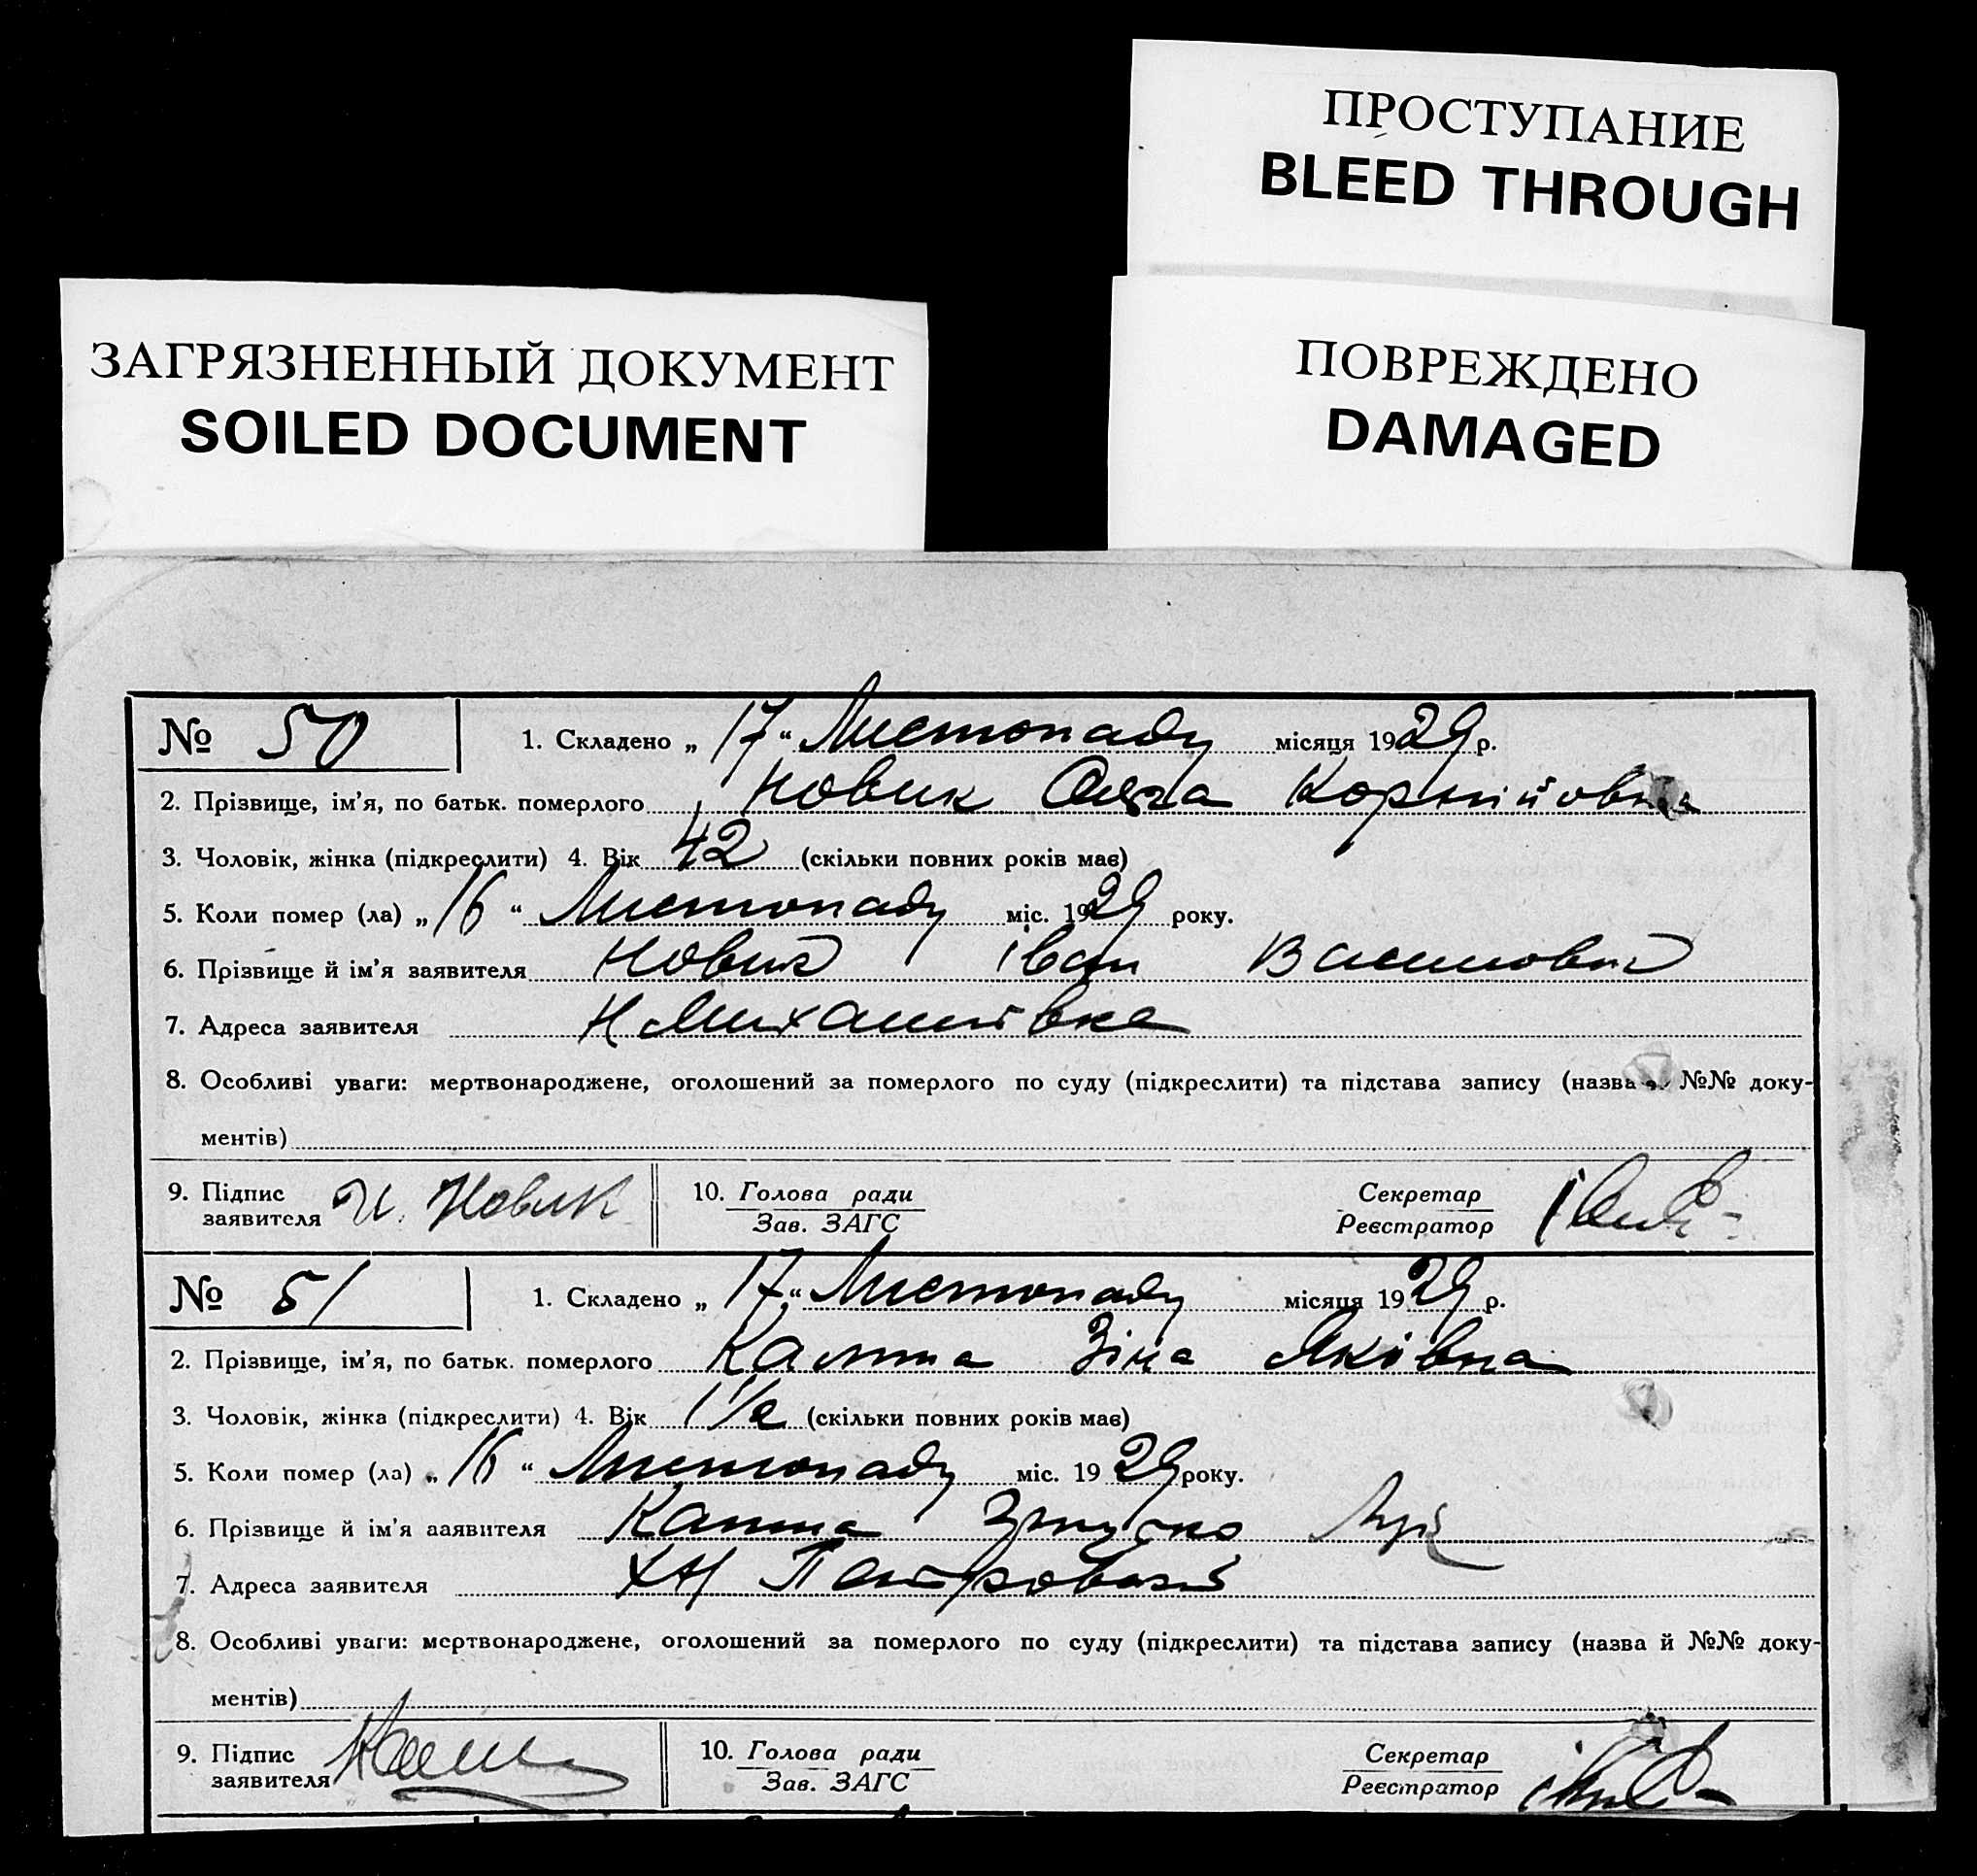 ПРОСТУПАНИЕ
BLEED THROUGH
ЗАГРЯЗНЕННЫЙ ДОКУМЕНТ
SOILED DOCUMENT
ПОВРЕЖДЕНО
DAMAGED
№ 50 1. Складено „17“ Листопаду місяця 1929 р.
2. Прізвище, ім’я, по батьк. померлого Новик Ольга Корнійовна
3. Чоловік, жінка (підкреслити) 4. Вік 42 (скільки повних років має)
5. Коли помер (ла) „16“ Листопаду міс. 1929 року.
6. Прізвище й ім’я заявителя Новик Іван
7. Адреса заявителя Н Михайлівка
8. Особливі уваги: мертвонароджене, оголошений за померлого по суду (підкреслити) та підстава запису (назва й №№ доку-
ментів)
9. Підпис заявителя И. Новик 10. Голова ради Зав. ЗАГС Секретар Реєстратор
№ 51 1. Складено „17“ Листопаду місяця 1929 р.
2. Прізвище, ім’я, по батьк. померлого Зіна Яківна
3. Чоловік, жінка (підкреслити) 4. Вік 1 1/2 (скільки повних років має)
5. Коли помер (ла) „16“ Листопаду міс. 1929 року.
6. Прізвище й ім’я заявителя
7. Адреса заявителя
8. Особливі уваги: мертвонароджене, оголошений за померлого по суду (підкреслити) та підстава запису (назва й №№ доку-
ментів)
9. Підпис заявителя 10. Голова ради Зав. ЗАГС Секретар Реєстратор